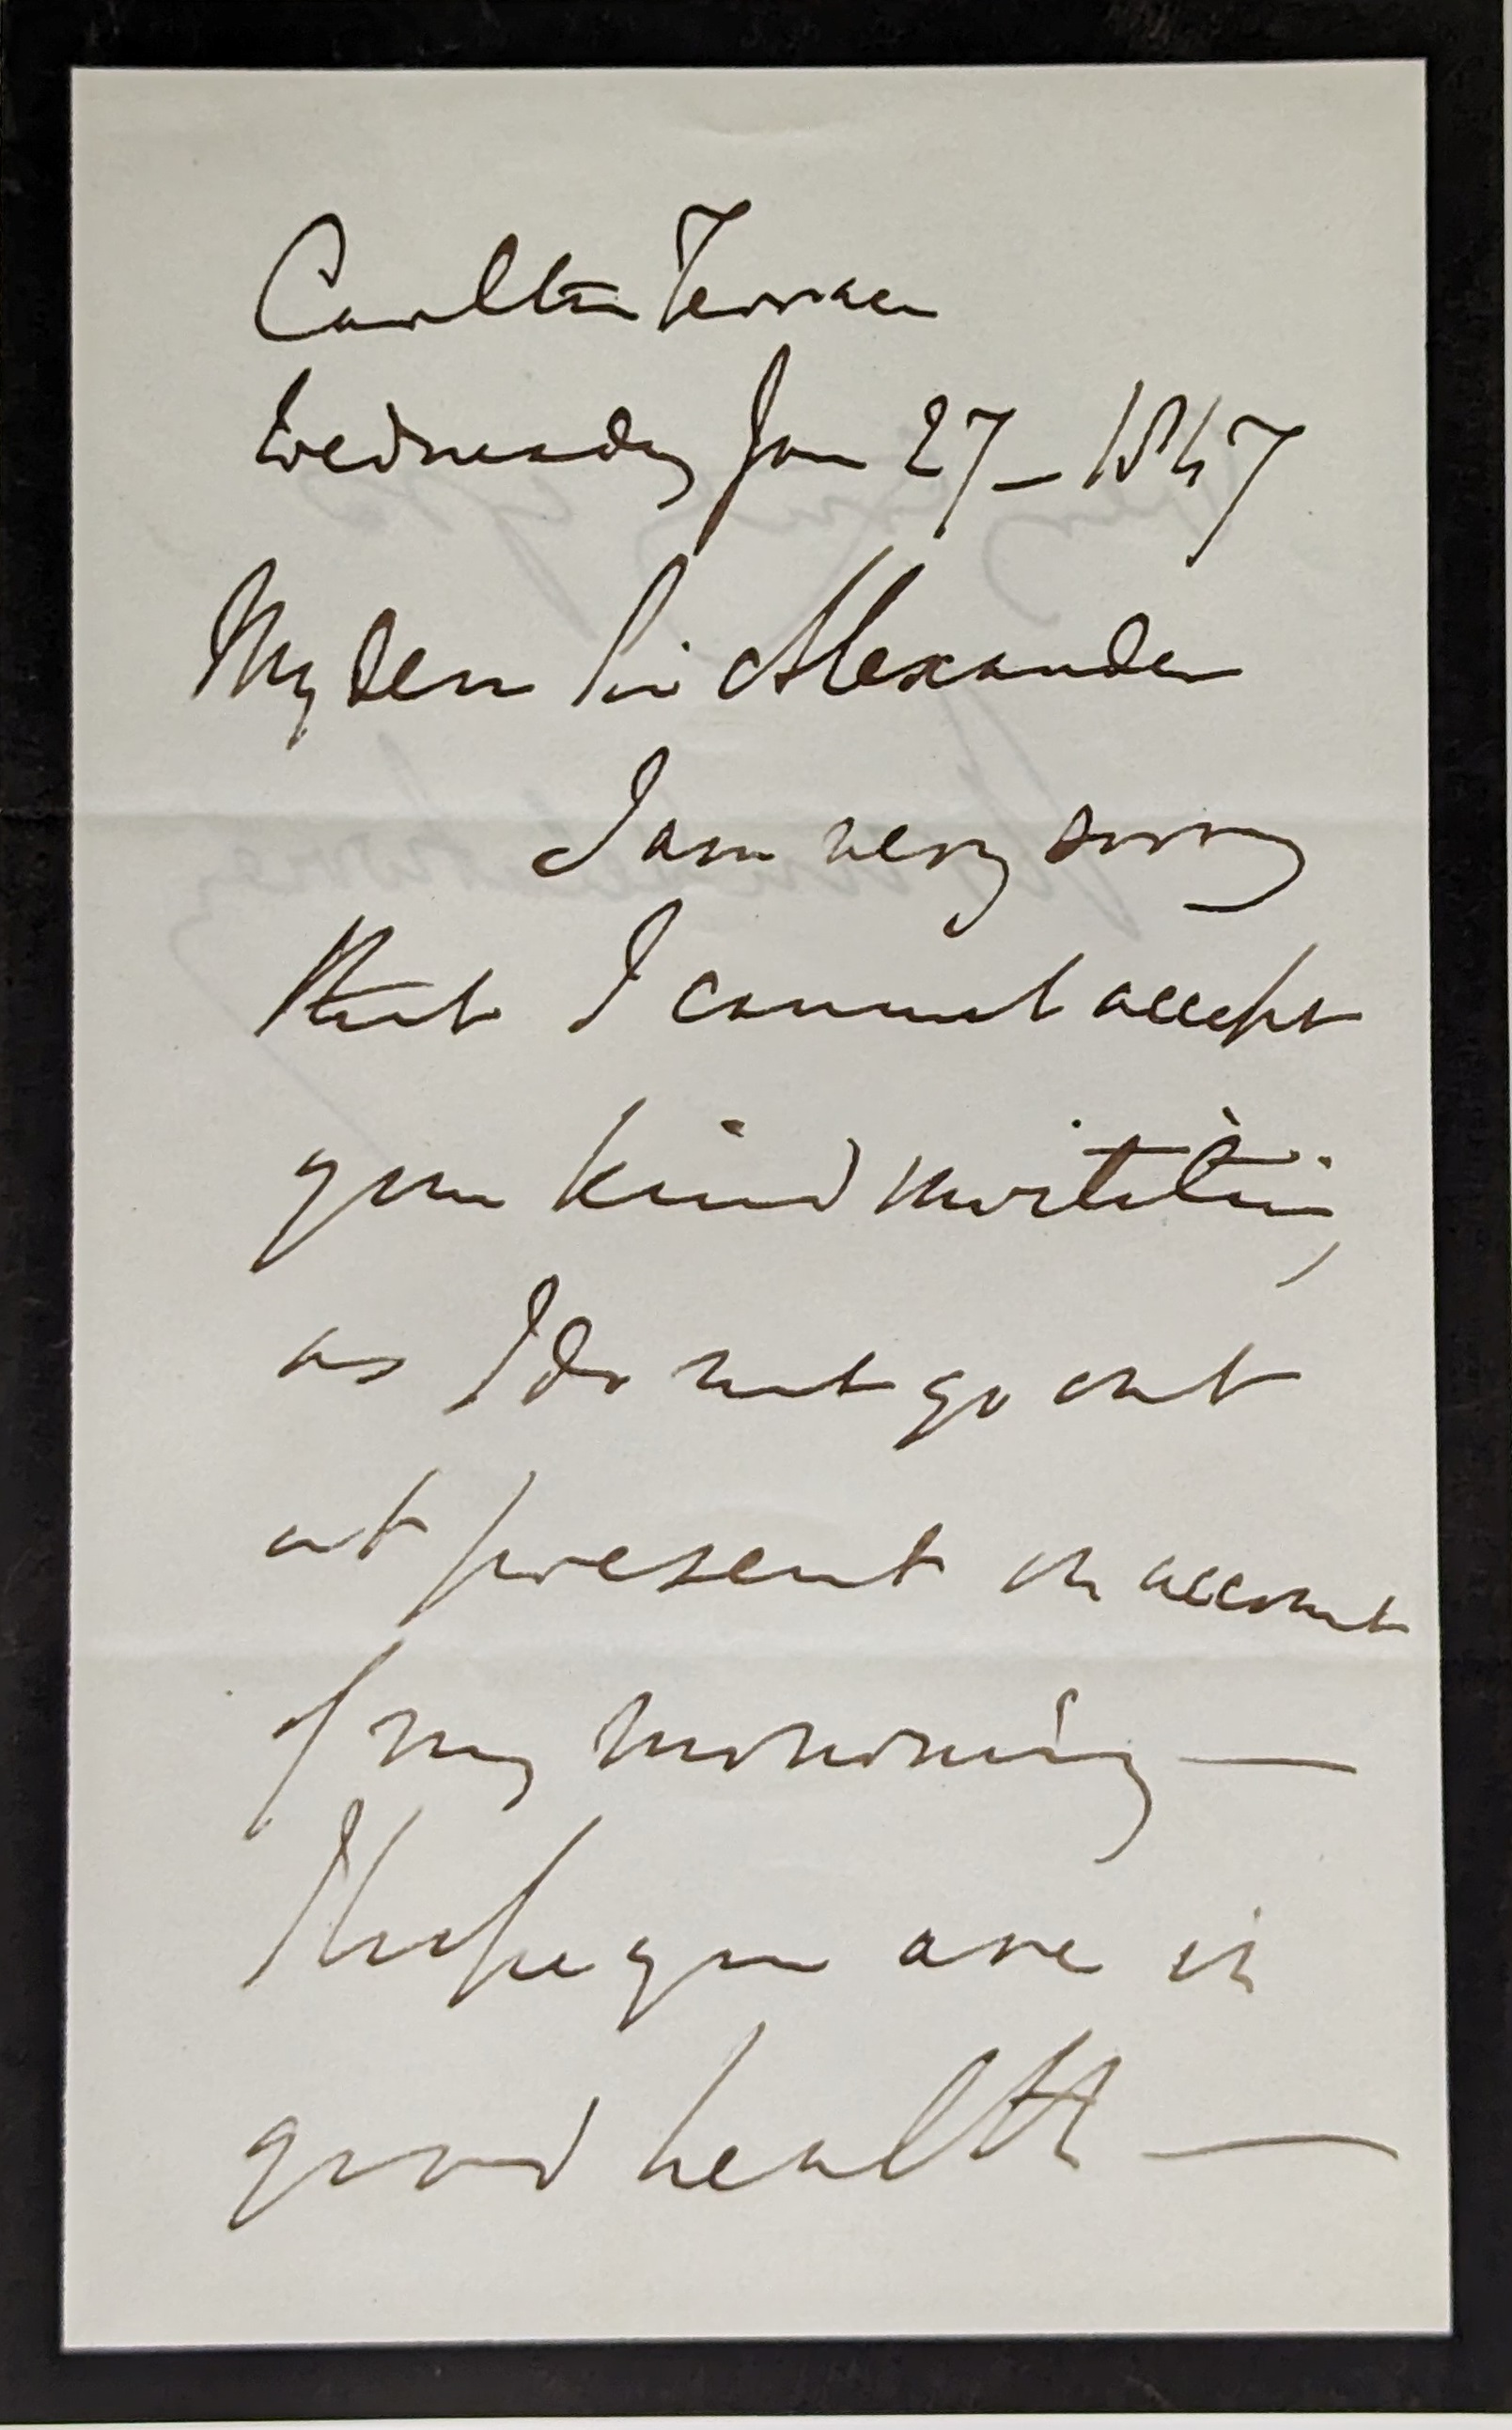 Carlton Terrace
Wednesday Jan 27 – 1847
My dear Sir Alexander
I am very sorry
that I cannot accept
your kind invitation,
as I do not go out
at present on account
of my mourning —
I hope you are in
good health —